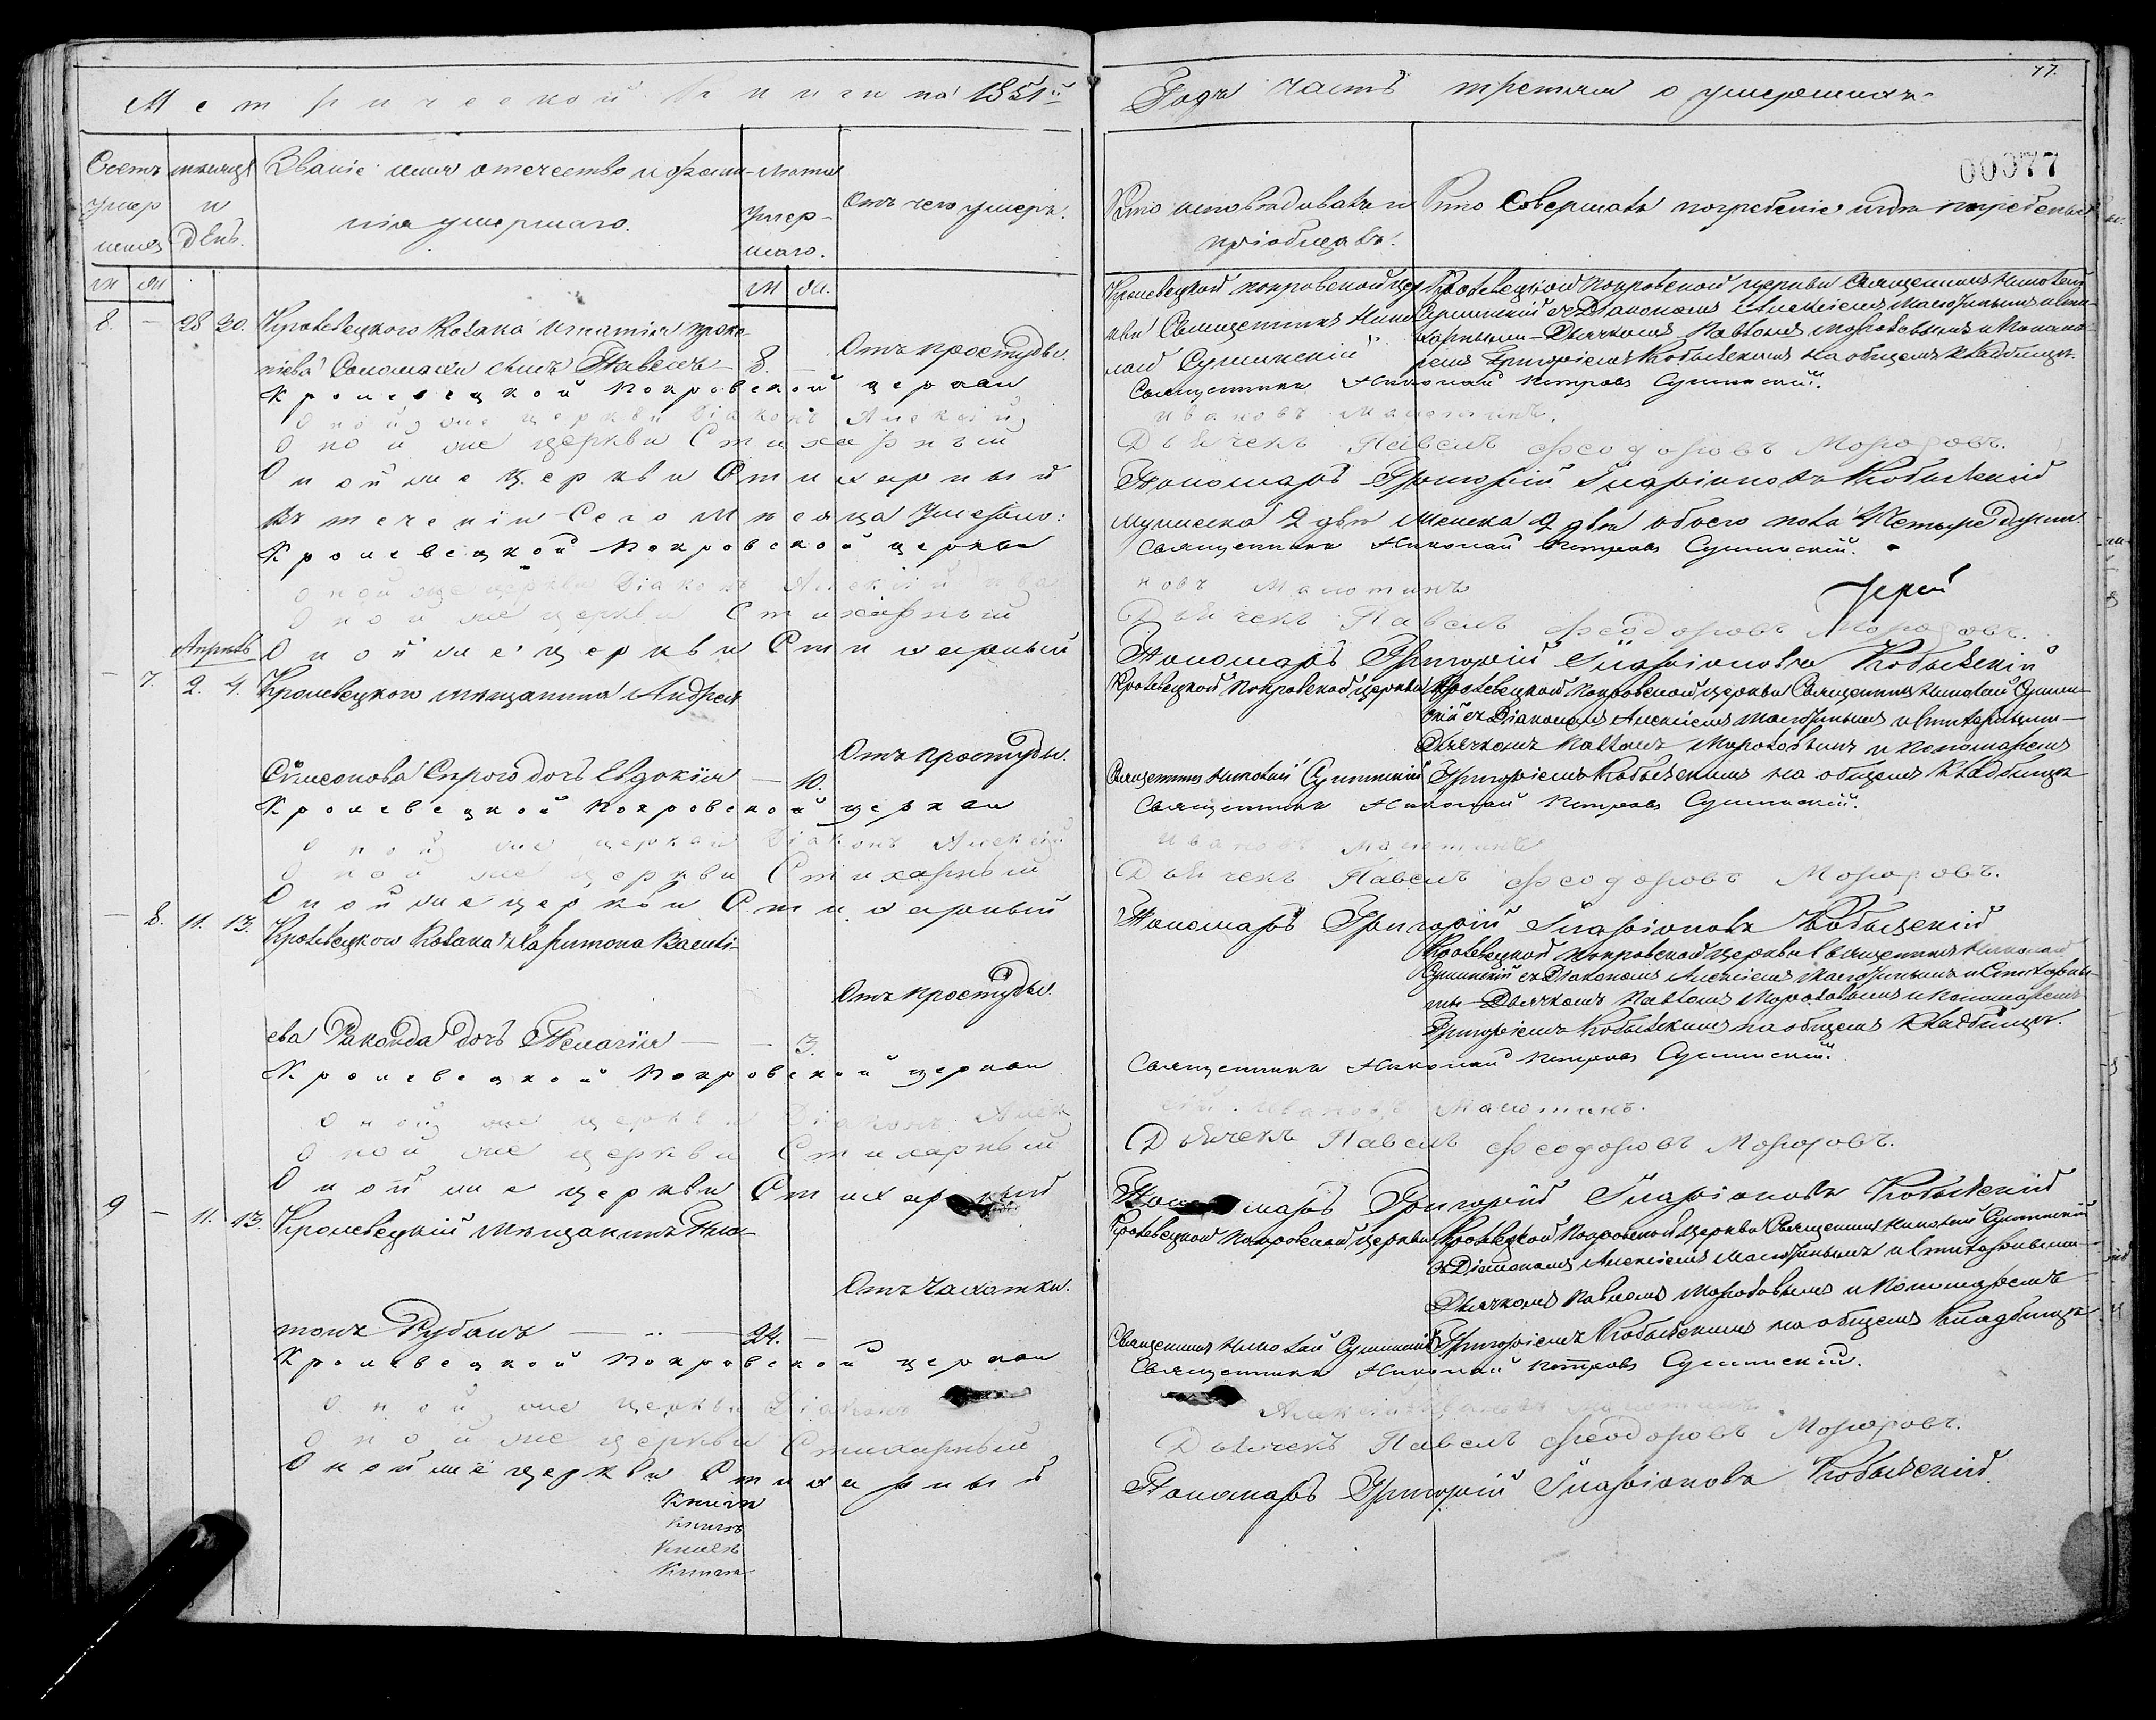 Метрической Книги на 1851й
Годъ часть третья о умершихъ.
77.
00077
Счетъ умер шихъ
мѣсяцъ и день.
Званіе имя отечество и фамилія умершаго.
Лѣта умер-шаго.
Отъ чего умеръ.
Кто исповѣдывалъ и пріобщалъ.
Кто совершалъ погребеніе и гдѣ погребены
М Ж
М Ж
8. — 28 30. Кролевецкого Козака Игнатія Проко-
піева сынъ Павелъ — 8. — Отъ простуды.
Кролевецкой Покровской церкви Священникъ Николай Сушинскій
Кролевецкой Покровской церкви Священникъ Николай
Сушинскій съ Діакономъ Алексіемъ Малютинымъ и Сти-
харнымъ Дьячкомъ Павломъ Морозовымъ и Понома-
ремъ Григоріемъ на общемъ кладбищѣ.
Кролевецкой Покровской церкви Священникъ Николай Петровъ Сушинскій.
Оной же церкви Діаконъ Алексій Ивановъ Малютинъ.
Оной же церкви Стихарный Дьячекъ Павелъ Феодоровъ Морозовъ.
Оной же церкви Стихарный Пономарь Григорій Иларіоновъ
Въ теченіи Сего Мнсяца Умерло: мужеска 2 два женска 2 два обоего пола 4 Четыре души.
Кролевецкой Покровской церкви Священникъ Николай Петровъ Сушинскій.
Оной же церкви Діаконъ Алексій Ивановъ Малютинъ
Іерей
Оной же церкви Стихарный Дьячекъ Павелъ Феодоровъ Морозовъ.
Оной же церкви Стихарный Пономарь Григорій Иларіоновъ
Апрѣль
— 7. 2. 4. Кролевецкого мѣщанина Андрея
Симеонова Сирого дочь Евдокія — 10. Отъ простуды.
Кролевецкой Покровской церкви
Священникъ Николай Сушинскій
Кролевецкой Покровской церкви Священникъ Николай Сушин-
скій съ Діакономъ Алексіемъ Малютинымъ и Стихарнымъ —
Дьячкомъ Павломъ Морозовымъ и Пономаремъ
Григоріемъ на общемъ кладбищѣ
Кролевецкой Покровской церкви Священникъ Николай Петровъ Сушинскій.
Оной же церкви Діаконъ Алексій Ивановъ Малютинъ
Оной же церкви Стихарный Дьячекъ Павелъ Феодоровъ Морозовъ.
Оной же церкви Стихарный Пономарь Григорій Иларіоновъ
— 8. 11. 13. Кролевецкого Козака Харитона Васили-
ева дочь Пелагія — — 3. Отъ простуды.
Кролевецкой Покровской церкви Священникъ Николай
Сушинскій съ Діакономъ Алексіемъ Малютинымъ и Стихарны-
мъ Дьячкомъ Павломъ Морозовымъ и Пономаремъ
Григоріемъ на общемъ кладбищѣ.
Кролевецкой Покровской церкви Священникъ Николай Петровъ Сушинскій.
Оной же церкви Діаконъ Алексій Ивановъ Малютинъ.
Оной же церкви Стихарный Дьячекъ Павелъ Феодоровъ Морозовъ.
Оной же церкви Стихарный Пономарь Григорій Иларіоновъ
9 — 11. 13. Кролевецкій мѣщанинъ Пла-
тонъ Рубанъ — 24. — Отъ чахотки.
Кролевецкой Покровской церкви
Священникъ Николай Сушинскій
Кролевецкой Покровской церкви Священникъ Николай Сушинскій
съ Діакономъ Алексіемъ Малютинымъ и Стихарнымъ —
Дьячкомъ Павломъ Морозовымъ и Пономаремъ
Григоріемъ на общемъ кладбищѣ
Кролевецкой Покровской церкви Священникъ Николай Петровъ Сушинскій.
Оной же церкви Діаконъ Алексій Ивановъ Малютинъ
Оной же церкви Стихарный Дьячекъ Павелъ Феодоровъ Морозовъ.
Оной же церкви Стихарный Пономарь Григорій Иларіоновъ